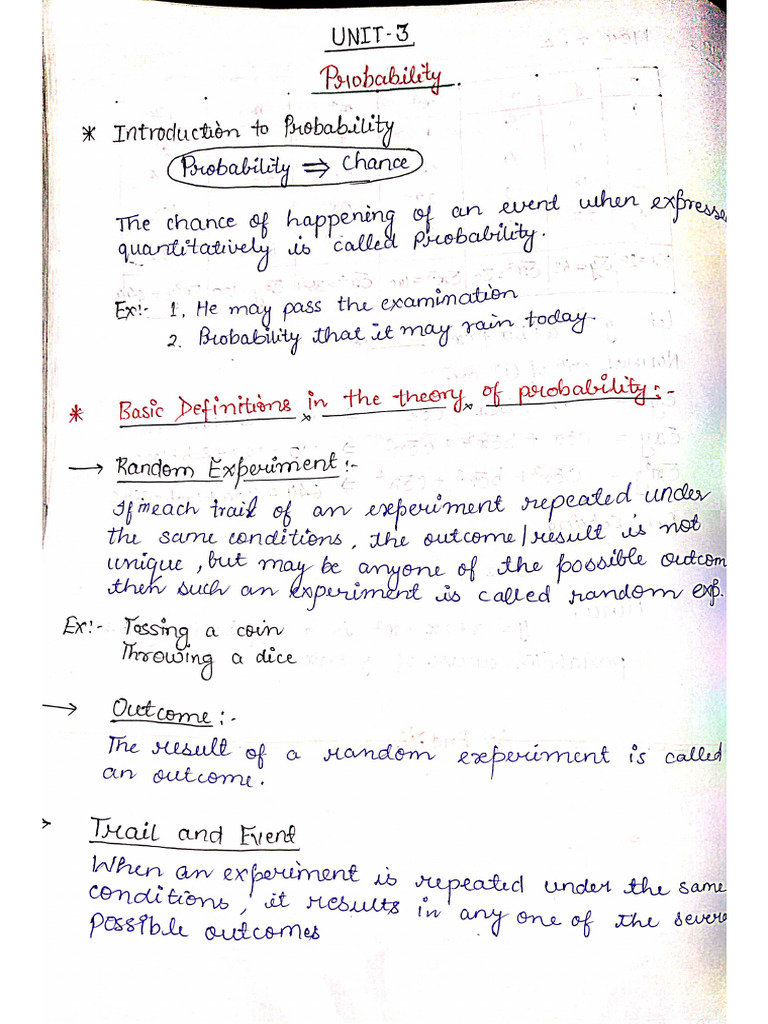 UNIT-3
Probability.
* Introduction to Probability
Probability ⇒ Chance
The chance of happening of an event when expresse
quantitatively is called Probability.
Ex:- 1. He may pass the examination
2. Probability that it may rain today.
* Basic Definitions in the theory of probability:-
→ Random Experiment:-
If in each trail of an experiment repeated under
the same conditions, the outcome/result is not
unique, but may be anyone of the possible outcom
then such an experiment is called random exp.
Ex:- Tossing a coin
Throwing a dice
→ Outcome:-
The result of a random experiment is called
an outcome.
→ Trail and Event
When an experiment is repeated under the same
conditions, it results in any one of the severa
possible outcomes